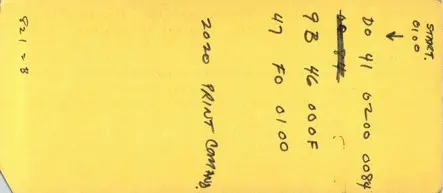 START.
0100
↓
D0 41 0200 0084
9B 46 000F
47 F0 0100
2020 PRINT COMMAND